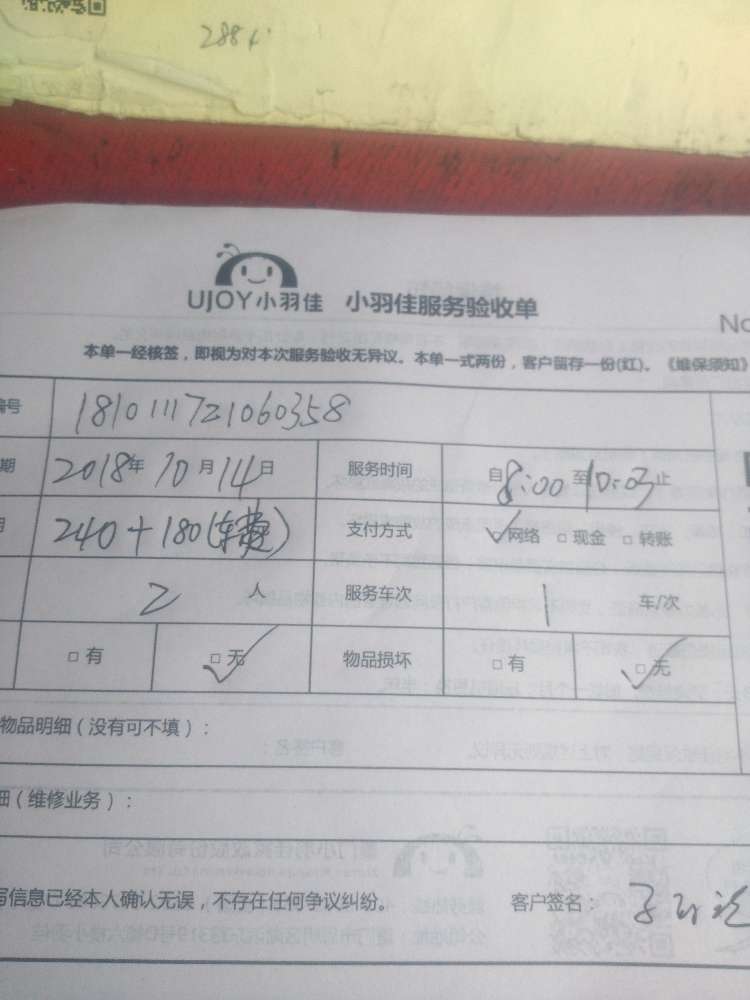 288
UJOY小羽佳 小羽佳服务验收单
No
本单一经核签，即视为对本次服务验收无异议。本单一式两份，客户留存一份(红)。《维保须知》
编号 181011172106035​8
期 2018年10月14日 服务时间 自8:00至10:03止
240+180(车费) 支付方式 ☑网络 □现金 □转账
2 人 服务车次 1 车/次
□有 ☑无 物品损坏 □有 ☑无
物品明细（没有可不填）：
细（维修业务）：
写信息已经本人确认无误，不存在任何争议纠纷。 客户签名：